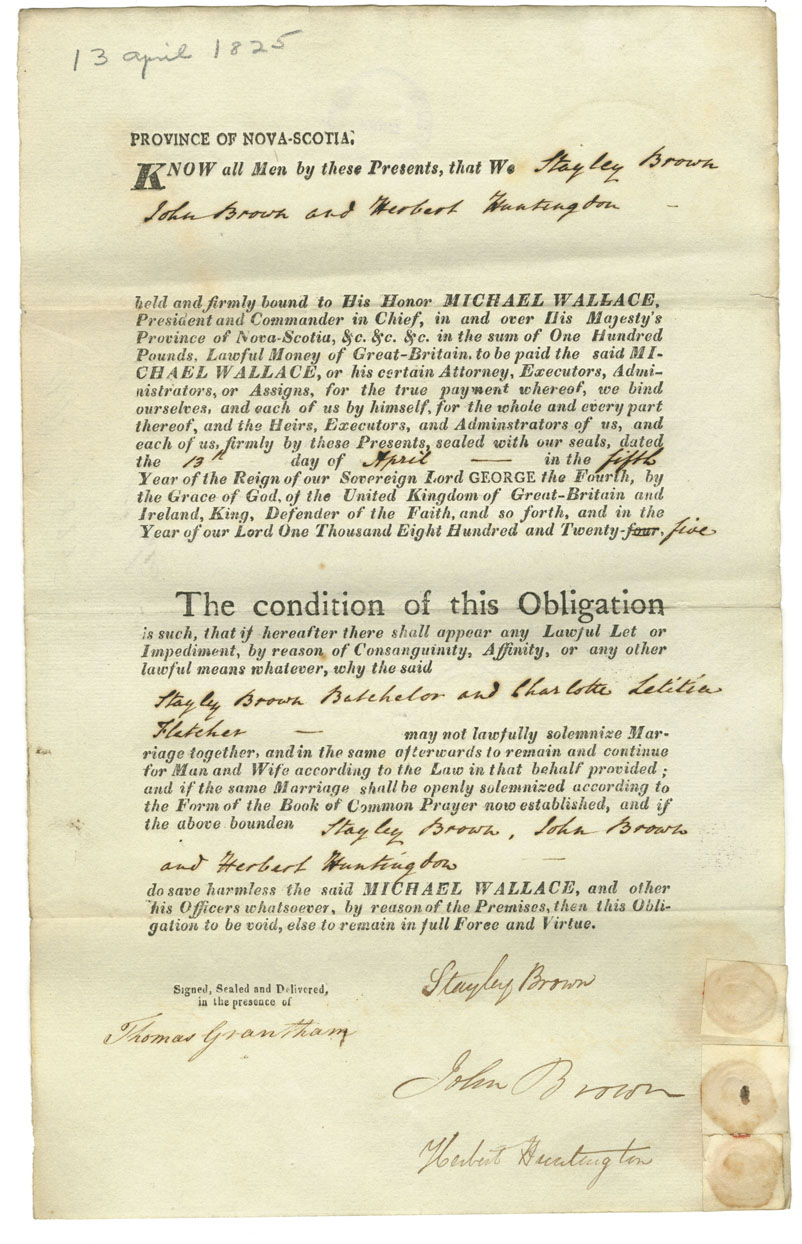 13 april 1825
PROVINCE OF NOVA-SCOTIA;
KNOW all Men by these Presents, that We Stayley Brown
John Brown and Herbert Huntingdon —
held and firmly bound to His Honor MICHAEL WALLACE,
President and Commander in Chief, in and over His Majesty's
Province of Nova-Scotia, &c. &c. &c. in the sum of One Hundred
Pounds, Lawful Money of Great-Britain, to be paid the said MI-
CHAEL WALLACE, or his certain Attorney, Executors, Admi-
nistrators, or Assigns, for the true payment whereof, we bind
ourselves, and each of us by himself, for the whole and every part
thereof, and the Heirs, Executors, and Adminstrators of us, and
each of us, firmly by these Presents, sealed with our seals, dated
the 13th day of April — in the fifth
Year of the Reign of our Sovereign Lord GEORGE the Fourth, by
the Grace of God, of the United Kingdom of Great-Britain and
Ireland, King, Defender of the Faith, and so forth, and in the
Year of our Lord One Thousand Eight Hundred and Twenty-four, five
The condition of this Obligation
is such, that if hereafter there shall appear any Lawful Let or
Impediment, by reason of Consanguinity, Affinity, or any other
lawful means whatever, why the said
Stayley Brown Batchelor and Charlotte Letitia
Fletcher — may not lawfully solemnize Mar-
riage together, and in the same afterwards to remain and continue
for Man and Wife according to the Law in that behalf provided;
and if the same Marriage shall be openly solemnized according to
the Form of the Book of Common Prayer now established, and if
the above bounden Stayley Brown, John Brown
and Herbert Huntingdon —
do save harmless the said MICHAEL WALLACE, and other
his Officers whatsoever, by reason of the Premises, then this Obli-
gation to be void, else to remain in full Force and Virtue.
Signed, Sealed and Delivered,
in the presence of
Stayley Brown
Thomas Grantham
John Brown
Herbert Huntington